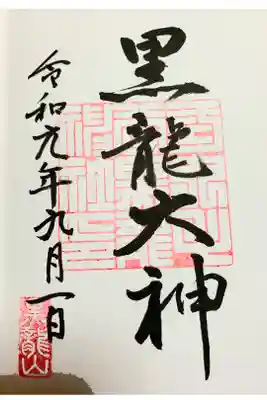 黒龍大神
令和元年九月一日